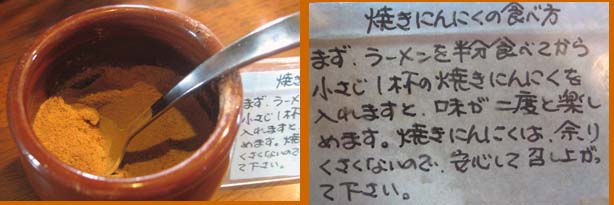 焼き
まず、ラーメ
小さじ1杯
入れますと、
めます。焼
くさくないので
て下さい。
焼きにんにくの食べ方
まず、ラーメンを半分食べてから
小さじ1杯の焼きにんにくを
入れますと、味が二度と楽し
めます。焼きにんにくは、余り
くさくないので、安心して召し上がっ
て下さい。